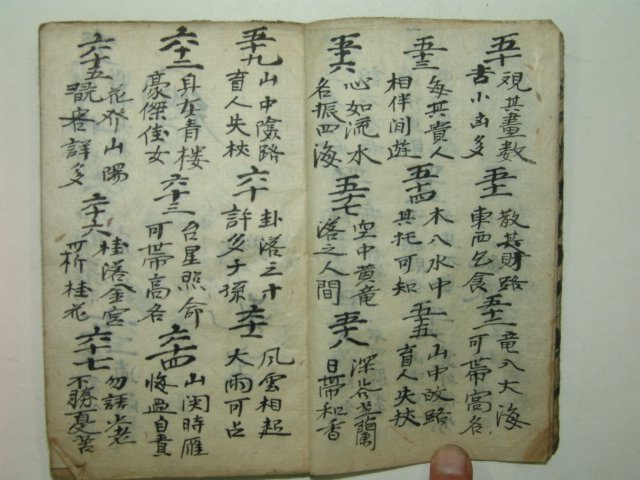 五十 觀其畫數
吉小凶多
五十一 散其財路
東西乞食
五十二 竜入大海
可帶高名
五十三 每其貴人
相伴間遊
五十四 木八水中
其托可知
五十五 山中故路
盲人失杖
五十六 心如流水
名振四海
五十七 空中黃竜
落之人間
五十八 深谷芝蘭
日帶和香
五十九 山中險路
盲人失杖
六十 卦落三十
許多子孫
六十一 風雲相起
大雨可占
六十二 身在青楼
豪傑佳女
六十三 台星照命
可帶高名
六十四 山関時雁
悔過自責
六十五 花発山陽
詳多
六十六 桂落金宮
可折桂花
六十七 勿話少老
不勝憂苦